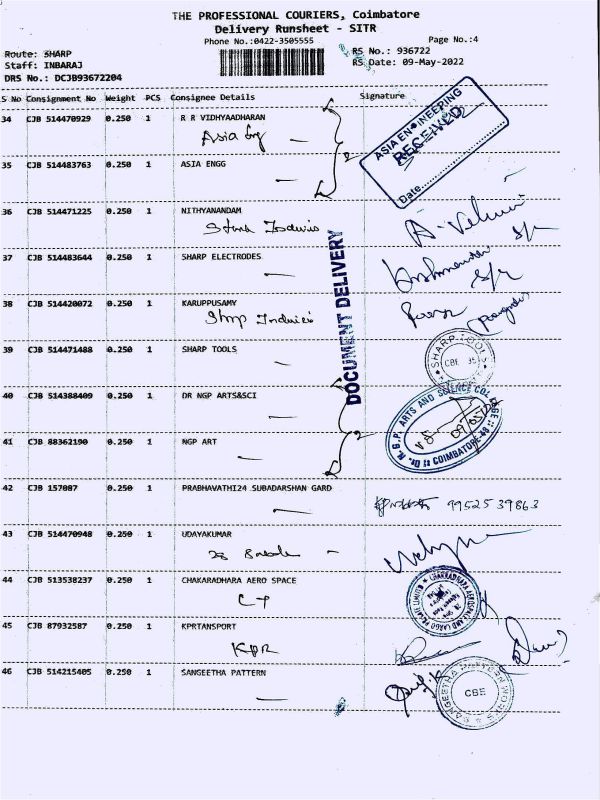 THE PROFESSIONAL COURIERS, Coimbatore
Delivery Runsheet - SITR
Phone No.:0422-3505555 Page No.:4
Route: SHARP RS No.: 936722
Staff: INBARAJ RS Date: 09-May-2022
DRS No.: DCJB93672204
S No Consignment No Weight PCS Consignee Details Signature
34 CJB 514470929 0.250 1 R R VIDHYAADHARAN
Asia Eng
ASIA ENGINEERING
RECEIVED
Date
35 CJB 514483763 0.250 1 ASIA ENGG
2
36 CJB 514471225 0.250 1 NITHYANANDAM
37 CJB 514483644 0.250 1 SHARP ELECTRODES
DOCUMENT DELIVERY
38 CJB 514420072 0.250 1 KARUPPUSAMY
39 CJB 514471488 0.250 1 SHARP TOOLS
SHARP TOOLS
CBE 35
40 CJB 514388409 0.250 1 DR NGP ARTS&SCI
Dr. N. G. P. ARTS AND SCIENCE COLLEGE
COIMBATORE-48
09/05/22
41 CJB 88362190 0.250 1 NGP ART
2
42 CJB 157087 0.250 1 PRABHAVATHI24 SUBADARSHAN GARD
9952539863
43 CJB 514470948 0.250 1 UDAYAKUMAR
44 CJB 513538237 1 0.250 CHAKARADHARA AERO SPACE
CHAKRADHARA AEROSPACE AND CARGO PRIVATE LIMITED
45 CJB 87932587 0.250 1 KPRTANSPORT
KPR
46 CJB 514215405 0.250 1 SANGEETHA PATTERN
SANGEETHA PATTERN WORKS
CBE